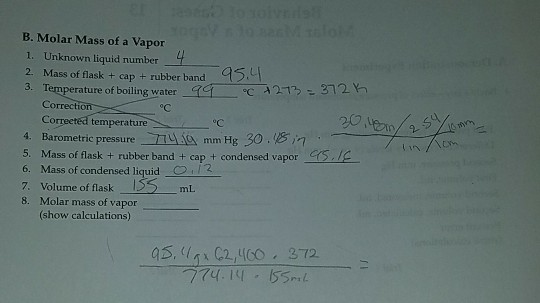 B. Molar Mass of a Vapor
1. Unknown liquid number 4
2. Mass of flask + cap + rubber band 95.4
3. Temperature of boiling water 99 °C +273 = 372 K
Correction °C
Corrected temperature °C
4. Barometric pressure 774.14 mm Hg 30.48 in
30.48in / 2.54 / 10mm =
1in / 1cm
5. Mass of flask + rubber band + cap + condensed vapor 95.16
6. Mass of condensed liquid 0.12
7. Volume of flask 155 mL
8. Molar mass of vapor
(show calculations)
95.4g x 62,400 . 372 =
774.14 - 155mL